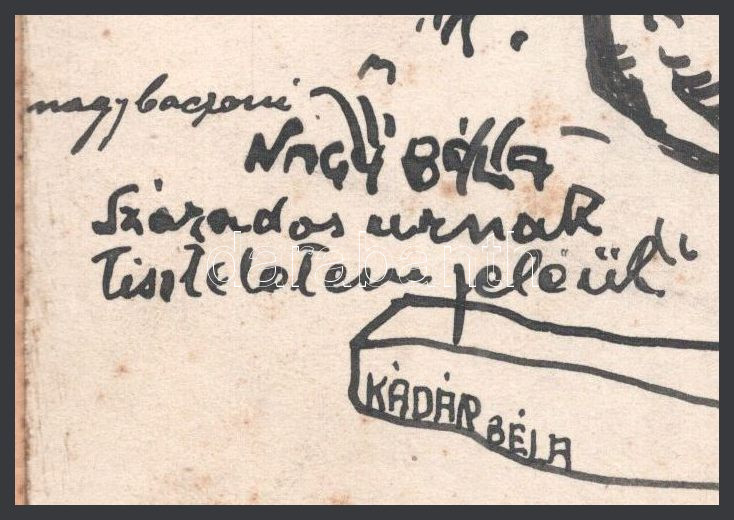 nagybaczoni
NAGY BÉLA
Százados urnak
Tiszteletem jeléül
KÁDÁR BÉLA
darabanth